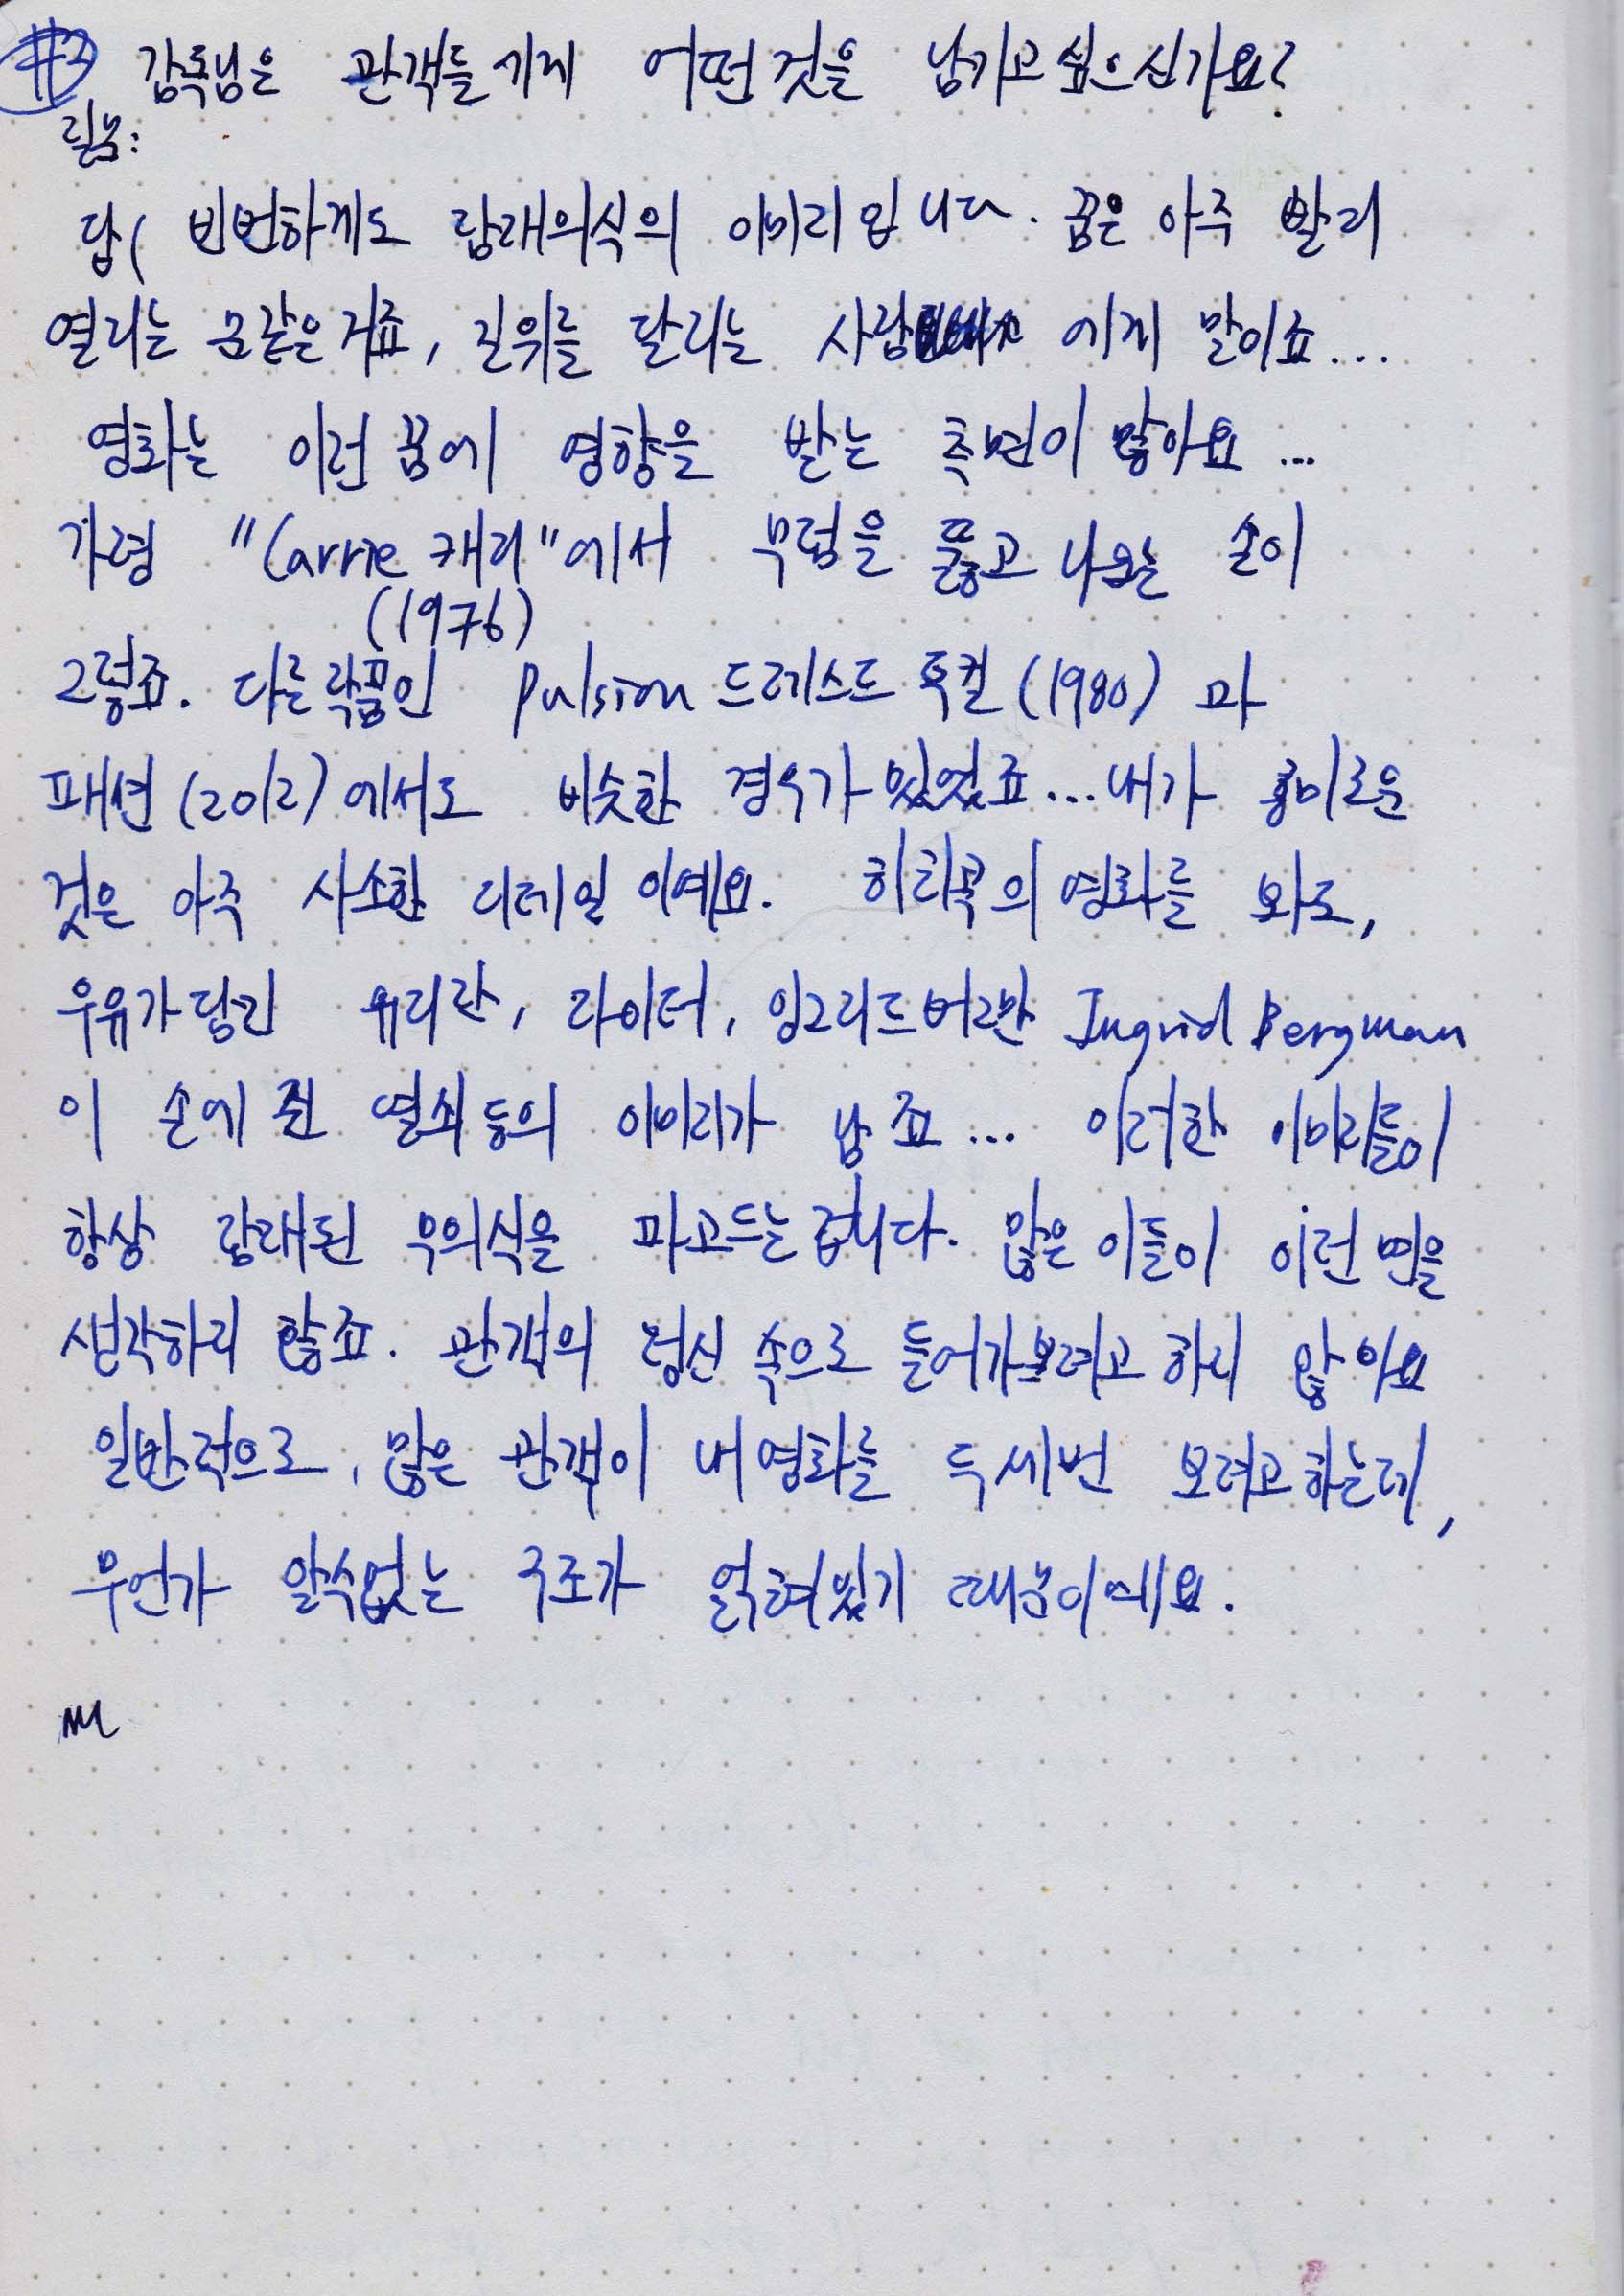 #3 감독님은 관객들에게 어떤것을 남기고 싶으신가요?
질문:
답( 빈번하게도 잠재의식의 이미지입니다. 꿈은 아주 빨리
열리는 문같은거죠, 길위를 달리는 사람 에게 말이죠...
영화는 이런 꿈에 영향을 받는 측면이 많아요...
가령 "Carrie 캐리"에서 무덤을 뚫고 나오는 손이
(1976)
그렇죠. 다른 작품인 Pulsion 드레스드 투 킬 (1980) 과
패션 (2012)에서도 비슷한 경우가 있었죠...내가 흥미로운
것은 아주 사소한 디테일 이예요. 히치콕의 영화를 봐도,
우유가 담긴 유리잔, 라이터, 잉그리드 버그만 Ingrid Bergman
이 손에 쥔 열쇠 등의 이미지가 남죠... 이러한 이미지들이
항상 잠재된 무의식을 파고드는 겁니다. 많은 이들이 이런 면을
생각하지 않죠. 관객의 정신 속으로 들어가보려고 하지 않아요
일반적으로, 많은 관객이 내 영화를 두세번 보려고 하는데,
무언가 알수없는 구조가 얽혀있기 때문이에요.